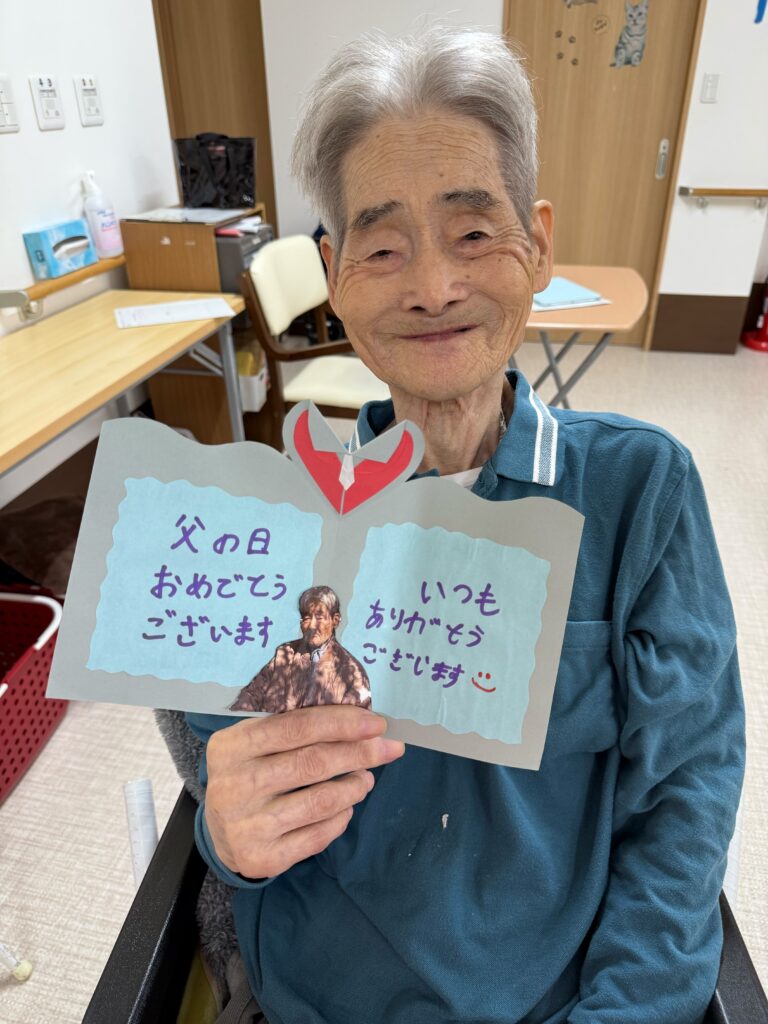 父の日
おめでとう
ございます
いつも
ありがとう
ございます